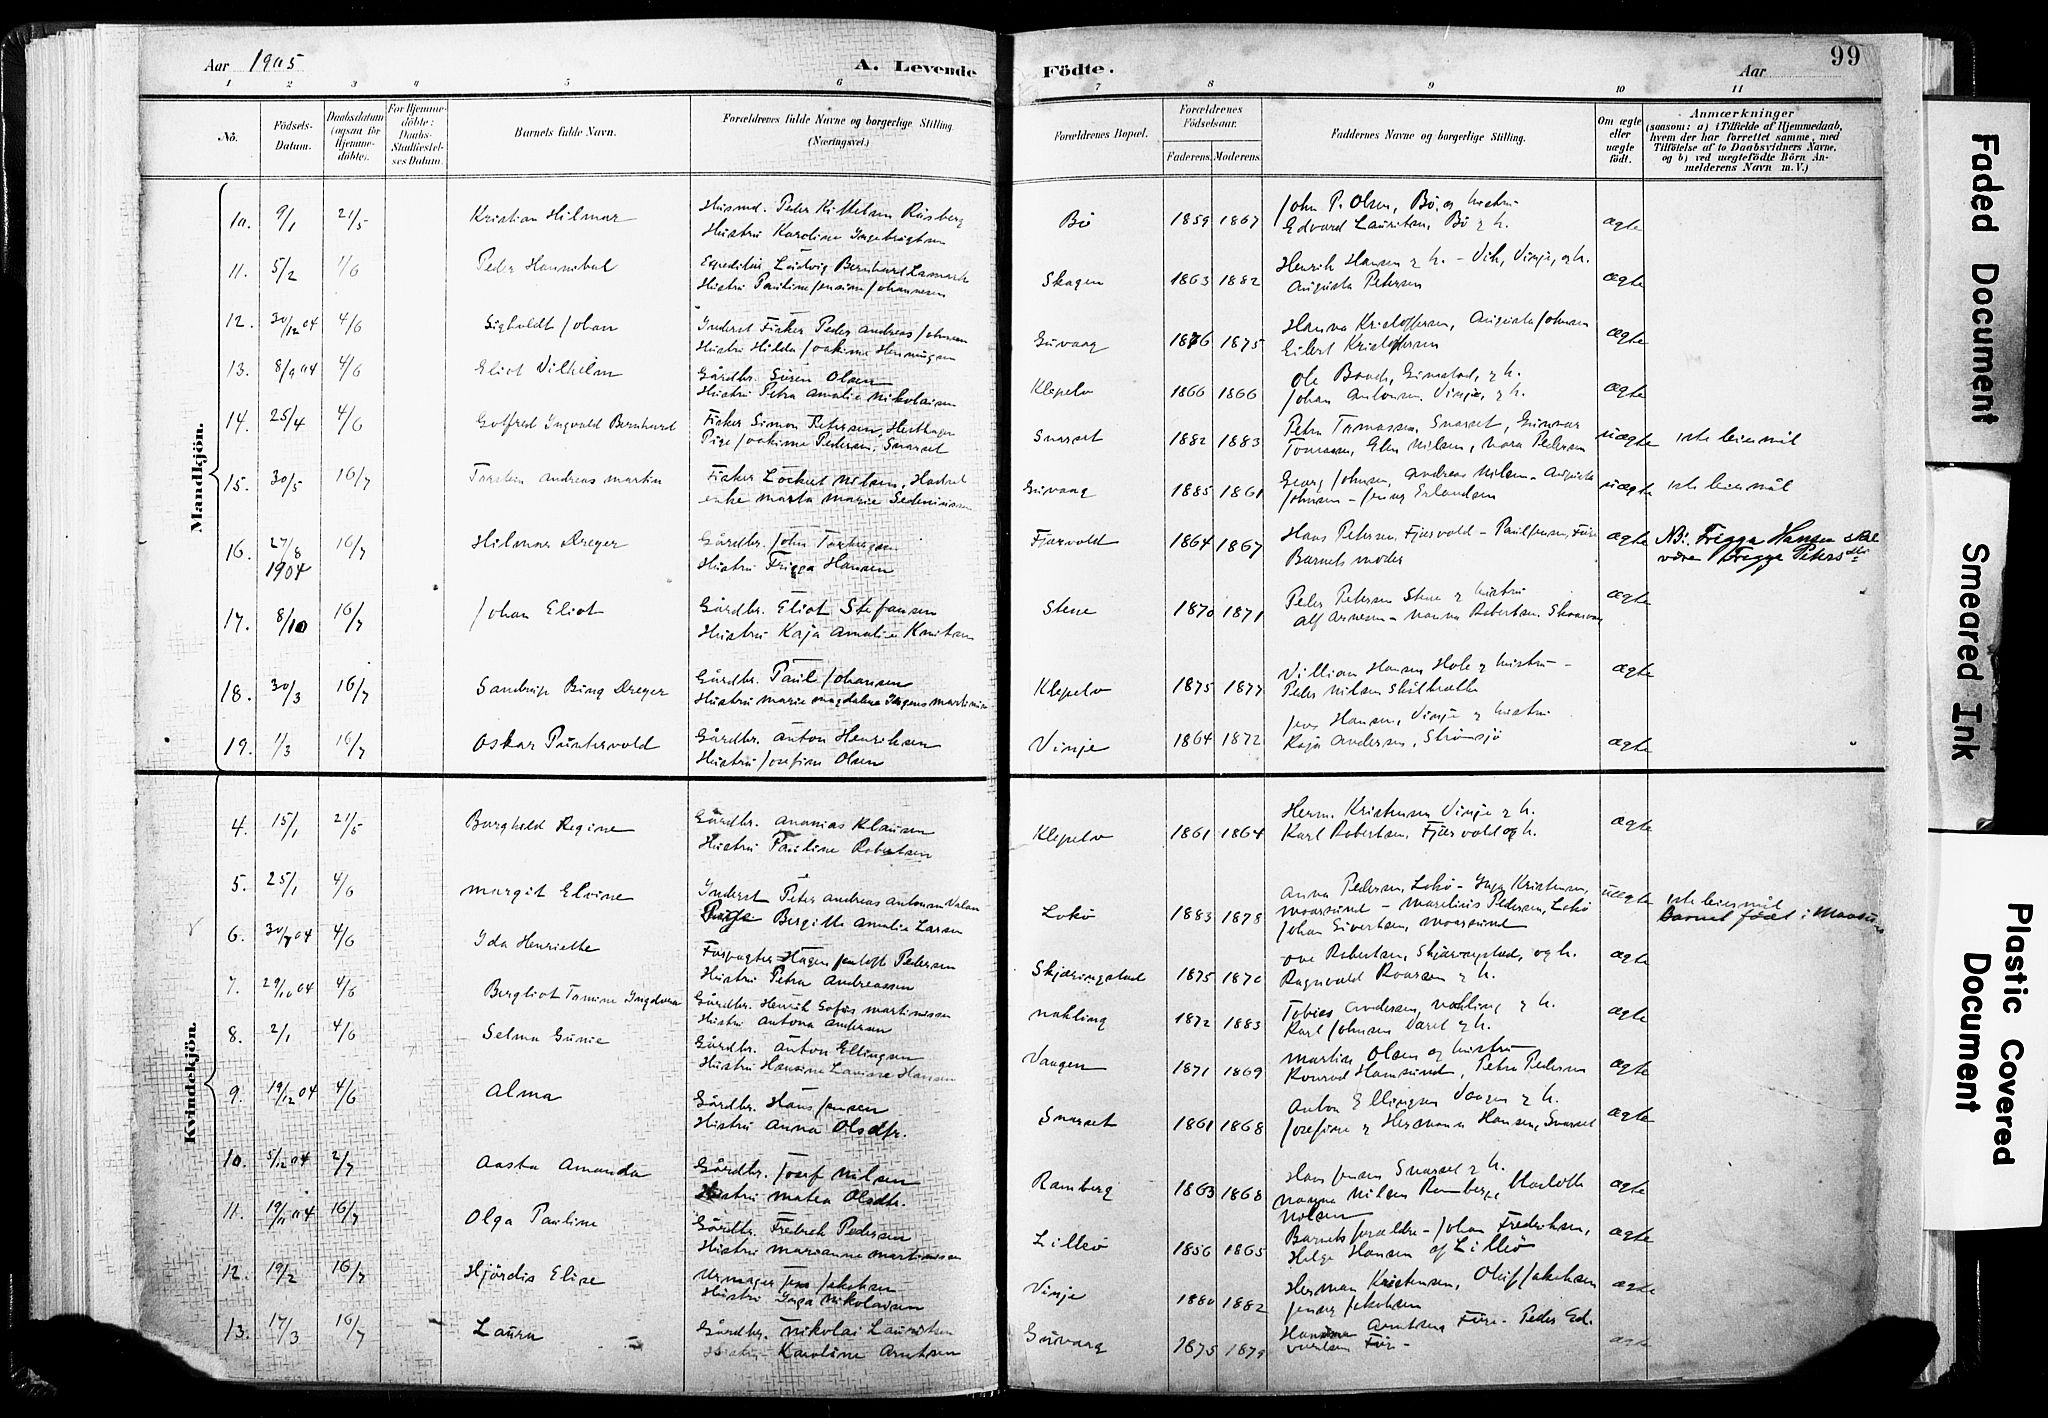 Aar 1905
A. Levende Födte.
Aar
99
1 2 3 4 5 6 7 8 9 10 11
Nö.
Födsels-Datum.
Daabsdatum (ogsaa för Hjemme-döbte).
For Hjemme-döbte: Daabs-Stadfæstel-ses Datum.
Barnets fulde Navn.
Forældrenes fulde Navne og borgerlige Stilling. (Næringsvei.)
Forældrenes Bopæl.
Forældrenes Födselsaar.
Faderens Moderens
Faddernes Navne og borgerlige Stilling.
Om ægte eller uægte födt.
Anmærkninger
(saasom: a) i Tilfælde af Hjemmedaab, hvem der har forrettet samme, med Tilföielse af to Daabsvidners Navne, og b) ved uægtefödte Börn An-melderens Navn m.V.)
Mandkjön.
10. 9/1 21/5 Kristian Hilmar Husmd. Peder Kittelsen Risberg
Hustru Karoline Ingebrigtsen
Bö 1859 1867 John P. Olsen, Bö, og hustru
Edvard Lauritsen, Bö & h. ægte
11. 5/2 1/6 Peder Hannibal Expeditör Ludvig Bernhard Lamark
Hustru Pauline Jensine Johannesen
Skagen 1863 1882 Henrik Hansen & h. - Vik, Vinje, og h.
Augusta Petersen ægte
12. 30/12 04 4/6 Sigholdt Johan Inderst Fisker Peder Andreas Johnsen
Hustru Hilda Joakime Henningsen
Guvaag 1876 1875 Hanna Kristoffersen, Augusta Johnsen
Eilert Kristoffersen ægte
13. 8/9 04 4/6 Eliot Vilhelm Gårdbr. Sören Olsen
Hustru Petra Amalie Nikolaisen
Klepelv 1866 1866 Ole Bonch, Grimstad, & h.
Johan Antonsen Vinje, & h. ægte
14. 25/4 4/6 Gotfred Ingvald Bernhard Fisker Simon Petersen,
Pige Joakime Pedersen, Snarset
Snarset 1882 1883 Petra Tomassen, Snarset, Gunnar
Tomassen, Elen Nilsen, Nora Pedersen uægte 1ste leiermål
15. 30/5 16/7 Torstein Andreas Martin Fisker Lockert Nilsen, Hadsel
enke Marta Marie
Guvaag 1885 1861 Georg Johnsen, Andreas Nilsen - Augusta
Johnsen - Jenny Erlandsen uægte 1ste leiermål
16. 27/8 1904 16/7 Hilmar Dreyer Gårdbr. John Torbergsen
Hustru Frigga Hansen
Fjærvold 1864 1867 Hans Petersen, Fjærvold - Paul Jensen, Före
Barnets moder ægte NB: Frigga Hansen skal
være Frigga Petersdtr
17. 8/10 16/7 Johan Eliot Gårdbr. Eliot Stefansen
Hustru Kaja Amalie Knutsen
Stene 1870 1871 Peder Petersen Stene & hustru
Alf Arnesen - Nanna Robertsen. ægte
18. 30/3 16/7 Sandrup Bing Dreyer Gårdbr. Paul Johansen
Hustru Marie Magdalena Jörgens Martinussen
Klepelv 1875 1877 Villiam Hansen Hole & hustru -
Peder Nilsen ægte
19. 1/3 16/7 Oskar Puntervold Gårdbr. Anton Henriksen
Hustru Josefine Olsen
Vinje 1864 1872 Jens Hansen, Vinje & hustru
Kaja Andersen, Strömsjö ægte
Kvindekjön.
4. 15/1 21/5 Borghild Regine Gårdbr. Ananias Klausen
Hustru Pauline Robertsen
Klepelv 1861 1864 Herm. Kristensen Vinje & h.
Karl Robertsen, Fjærvoll og h. ægte
5. 25/1 4/6 Margit Elvine Inderst Peter Andreas Antonsen
Pige Bergitte Amalie Larsen
Lokö 1883 1878 Anna Pedersen, Lokö - Inga Kristensen,
Maarsund - Marelius Pedersen, Lokö
Johan Sivertsen, Maarsund uægte 1ste leiermål
Barnet födt i
6. 30/7 04 4/6 Ida Henriette Forpagter Hagen Jentoft Pedersen
Hustru Petra Andreassen
Skjæringstad 1875 1870 Ove Robertsen, Skjæringstad, og h.
Ragnvald Roarsen & h. ægte
7. 29/10 04 4/6 Bergliot Tomine Ingdora Gårdbr. Henrik Gofus Martinussen
Hustru Antona Andersen
Nakling 1872 1883 Tobias Andersen, Nakling & h.
Karl Johnsen & h. ægte
8. 2/1 4/6 Selma Gunie Gårdbr. Anton Ellingsen
Hustru Hansine Lavisse Hansen
Vaagen 1871 1869 Martin Olsen og hustru
Konrad Hamsund, Petra Pedersen ægte
9. 19/12 04 4/6 Alma Gårdbr. Hans Jensen
Hustru Anna Olsdtr.
Snarset 1861 1868 Anton Ellingsen Vaagen & h.
Josefine & Hermann Hansen, Snarset ægte
10. 5/12 04 2/7 Aasta Amanda Gårdbr. Josef Nilsen
Hustru Matea Olsdtr.
Ramberg 1863 1868 Hans Jensen Snarset & h.
Nanna Nilsen Ramberg, Harlotte
Nilsen ægte
11. 19/11 04 16/7 Olga Pauline Gårdbr. Fredrik Pedersen
Hustru Marianne Martinussen
Lilleö 1856 1865 Barnets forældre - Johan Fredriksen,
Helge Hansen af Lilleö ægte
12. 19/2 16/7 Hjördis Elise Urmager Jens Jakobsen
Hustru Inga Nikolaisen
Vinje 1880 1882 Herman Kristensen, Oluf Jakobsen
Jenny Jakobsen ægte
13. 17/3 16/7 Laura Gårdbr. Nikolai Lauritsen
Hustru Karoline Arntsen
Guvaag 1875 1879 Arntsen Före - Peder Ed.
Före - ægte
Faded Document
Smeared Ink
Plastic Covered Document